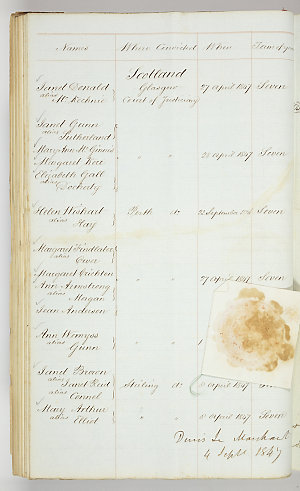 Names Where Convicted When Term of
Scotland
Janet Donald Glasgow 27 April 1847 Seven
alias
McKechnie Court of Justiciary
Janet Gunn
alias
Sutherland
Mary Ann McGinnis
Margaret Kerr " " 28 April 1847 Seven
Elizabeth Gall
alias
Docharty
Helen Wishart Perth do 22 September 1846 Seven
alias
Hay
Margaret Findlater
alias
Ewer
Margaret Crichton " " 27 April 1847 Seven
Ann Armstrong
alias
Magan
Jean Anderson
Ann Wemyss
alias
Gunn
Janet Brown
alias
Janet Reid Stirling do 8 April 1847
Connel
Mary Arthur " " 8 April 1847 Seven
alias
Elliot
Denis Le Marchant
4 Sept 1847